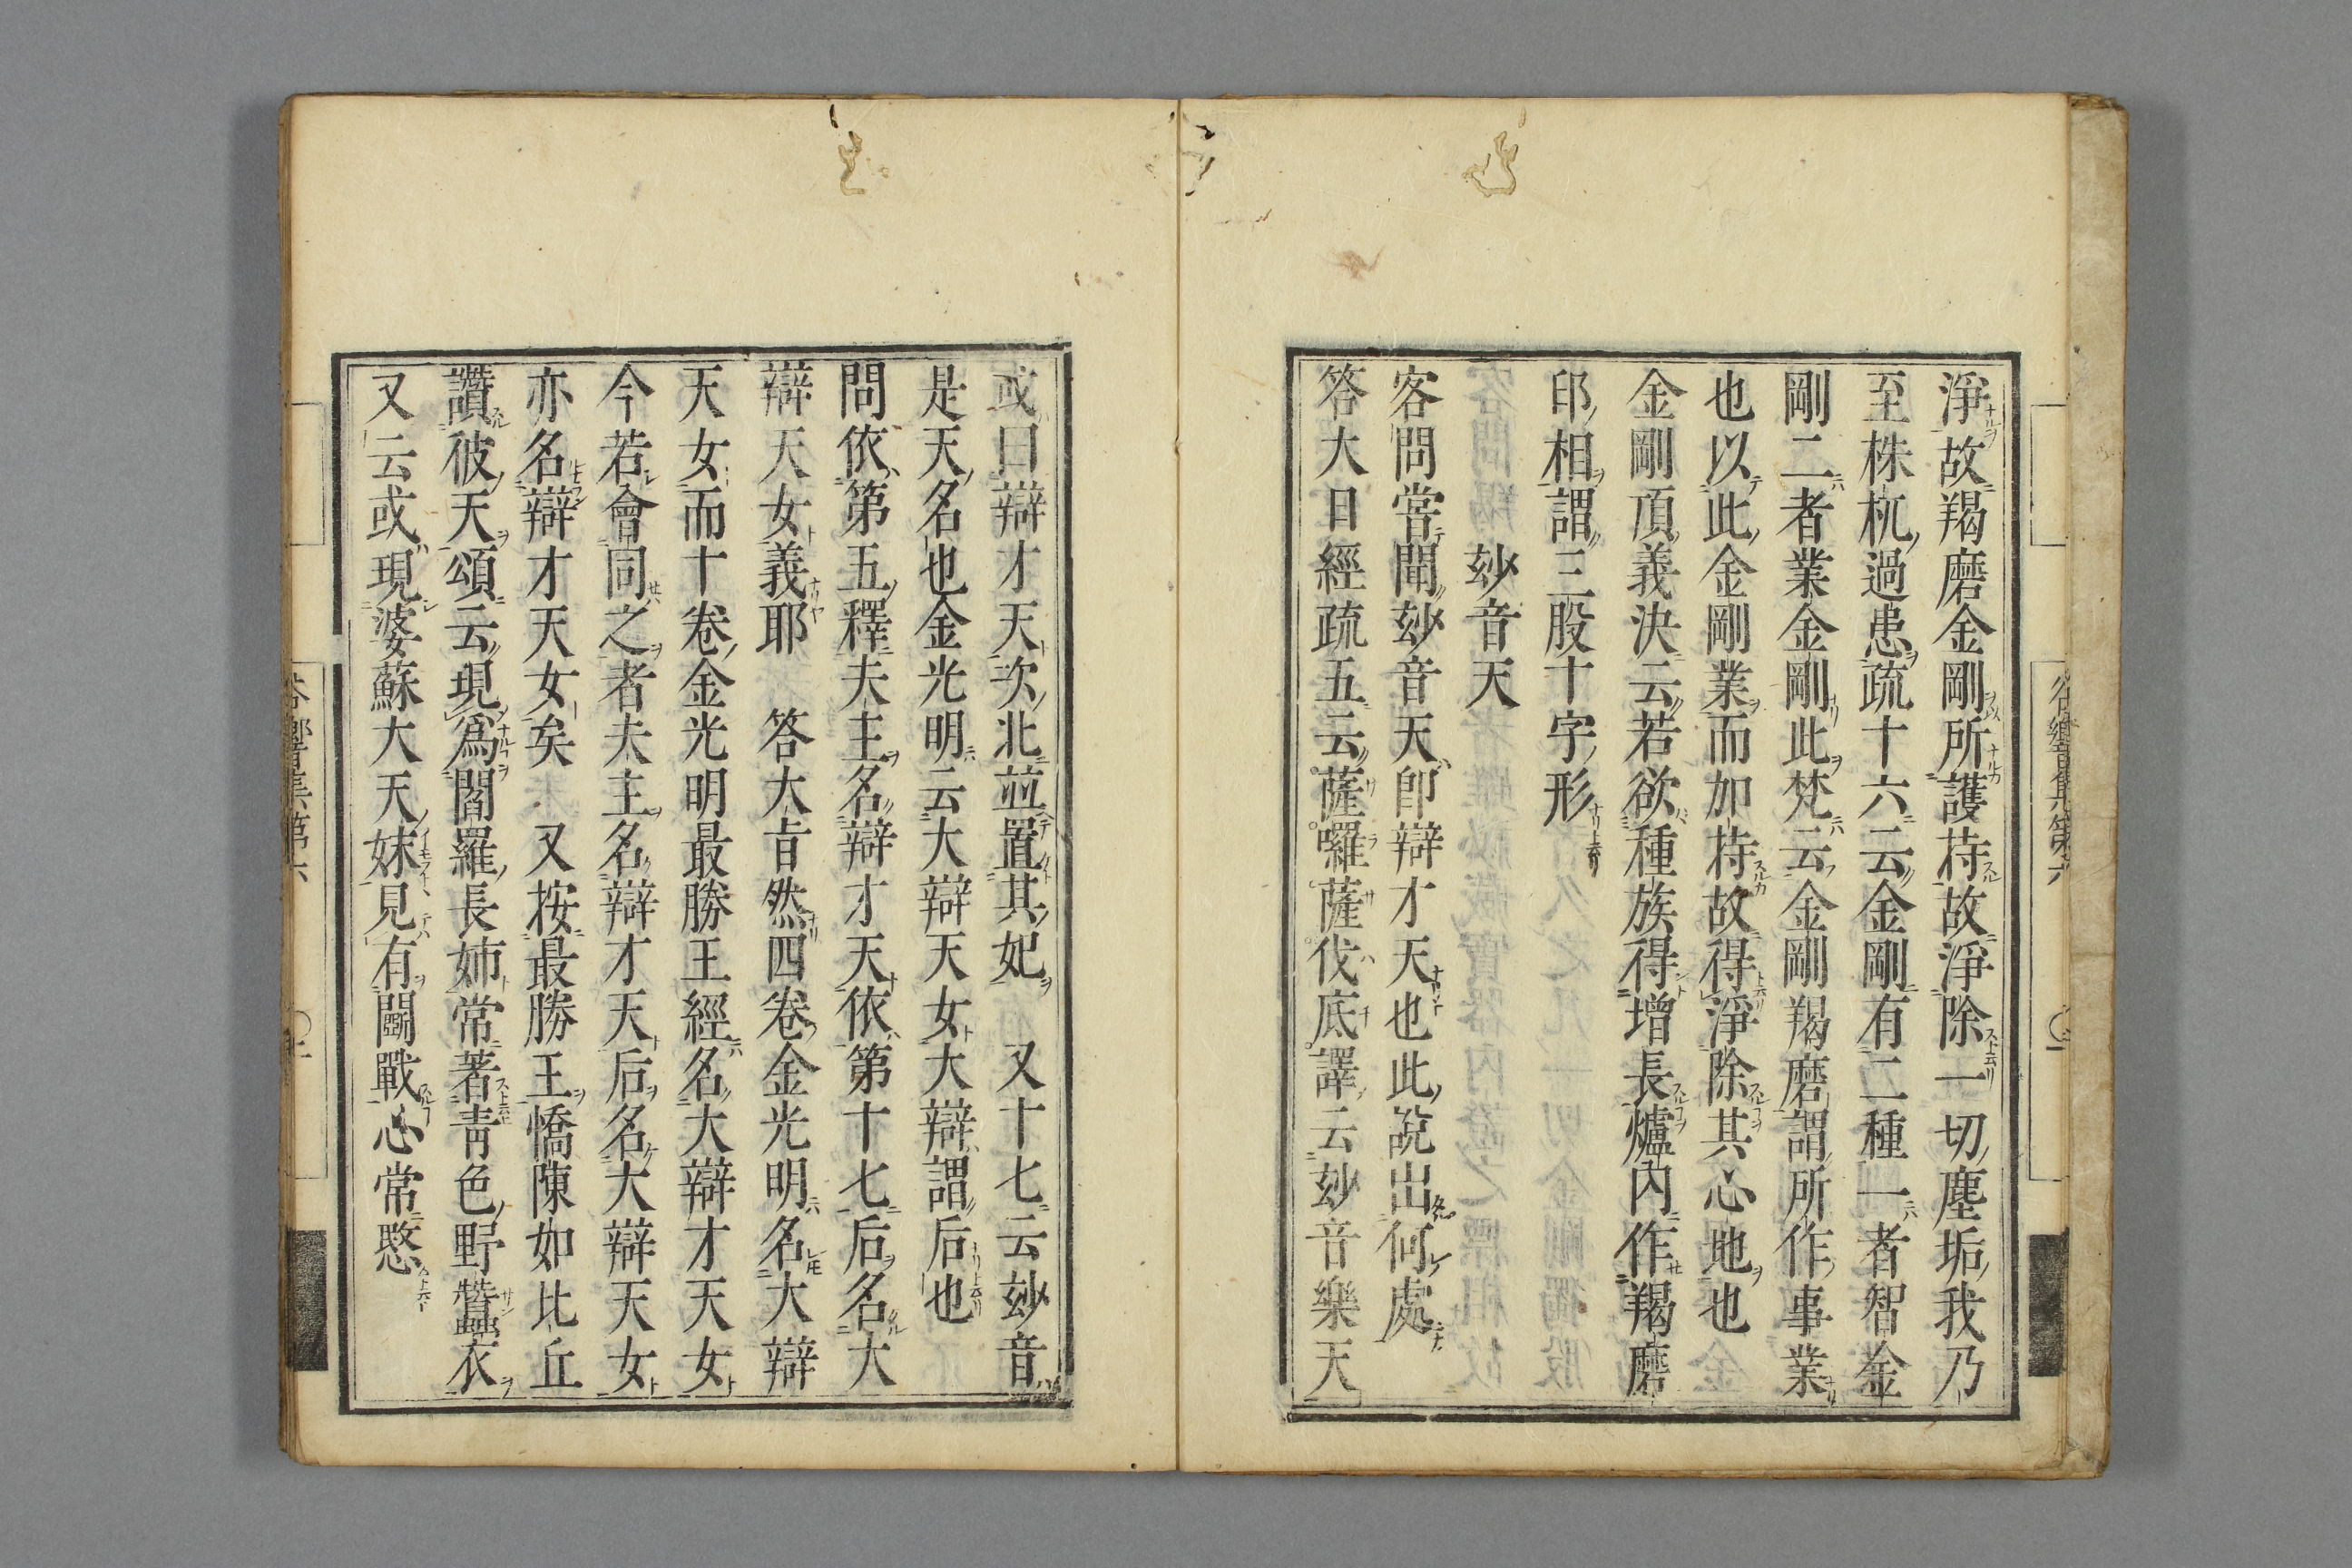 淨故羯磨金剛所護持故淨除一切塵垢我乃
至株杌過患疏十六云金剛有二種一者智金
剛二者業金剛此梵云金剛羯磨謂所作事業
也以此金剛業而加持故得淨除其心地也
金剛頂義決云若欲種族得增長爐內作羯磨
印相謂三股十字形
妙音天
客問當聞妙音天卽辯才天也此說出何處
答大日經疏五云薩囉薩伐底譯云妙音樂天
或曰辯才天次北並置其妃 又十七云妙音
是天名也金光明云大辯天女大辯謂后也
問依第五釋夫主名辯才天依第十七后名大
辯天女義耶 答大旨然四卷金光明名大辯
天女而十卷金光明最勝王經名大辯才天女
今若會同之者夫主名辯才天后名大辯天女
亦名辯才天女矣 又按最勝王憍陳如比丘
讚彼天頌云現爲閻羅長姉常著青色野蠶衣
又云或現婆蘇大天妹見有鬭戰心常愍
谷響集第六